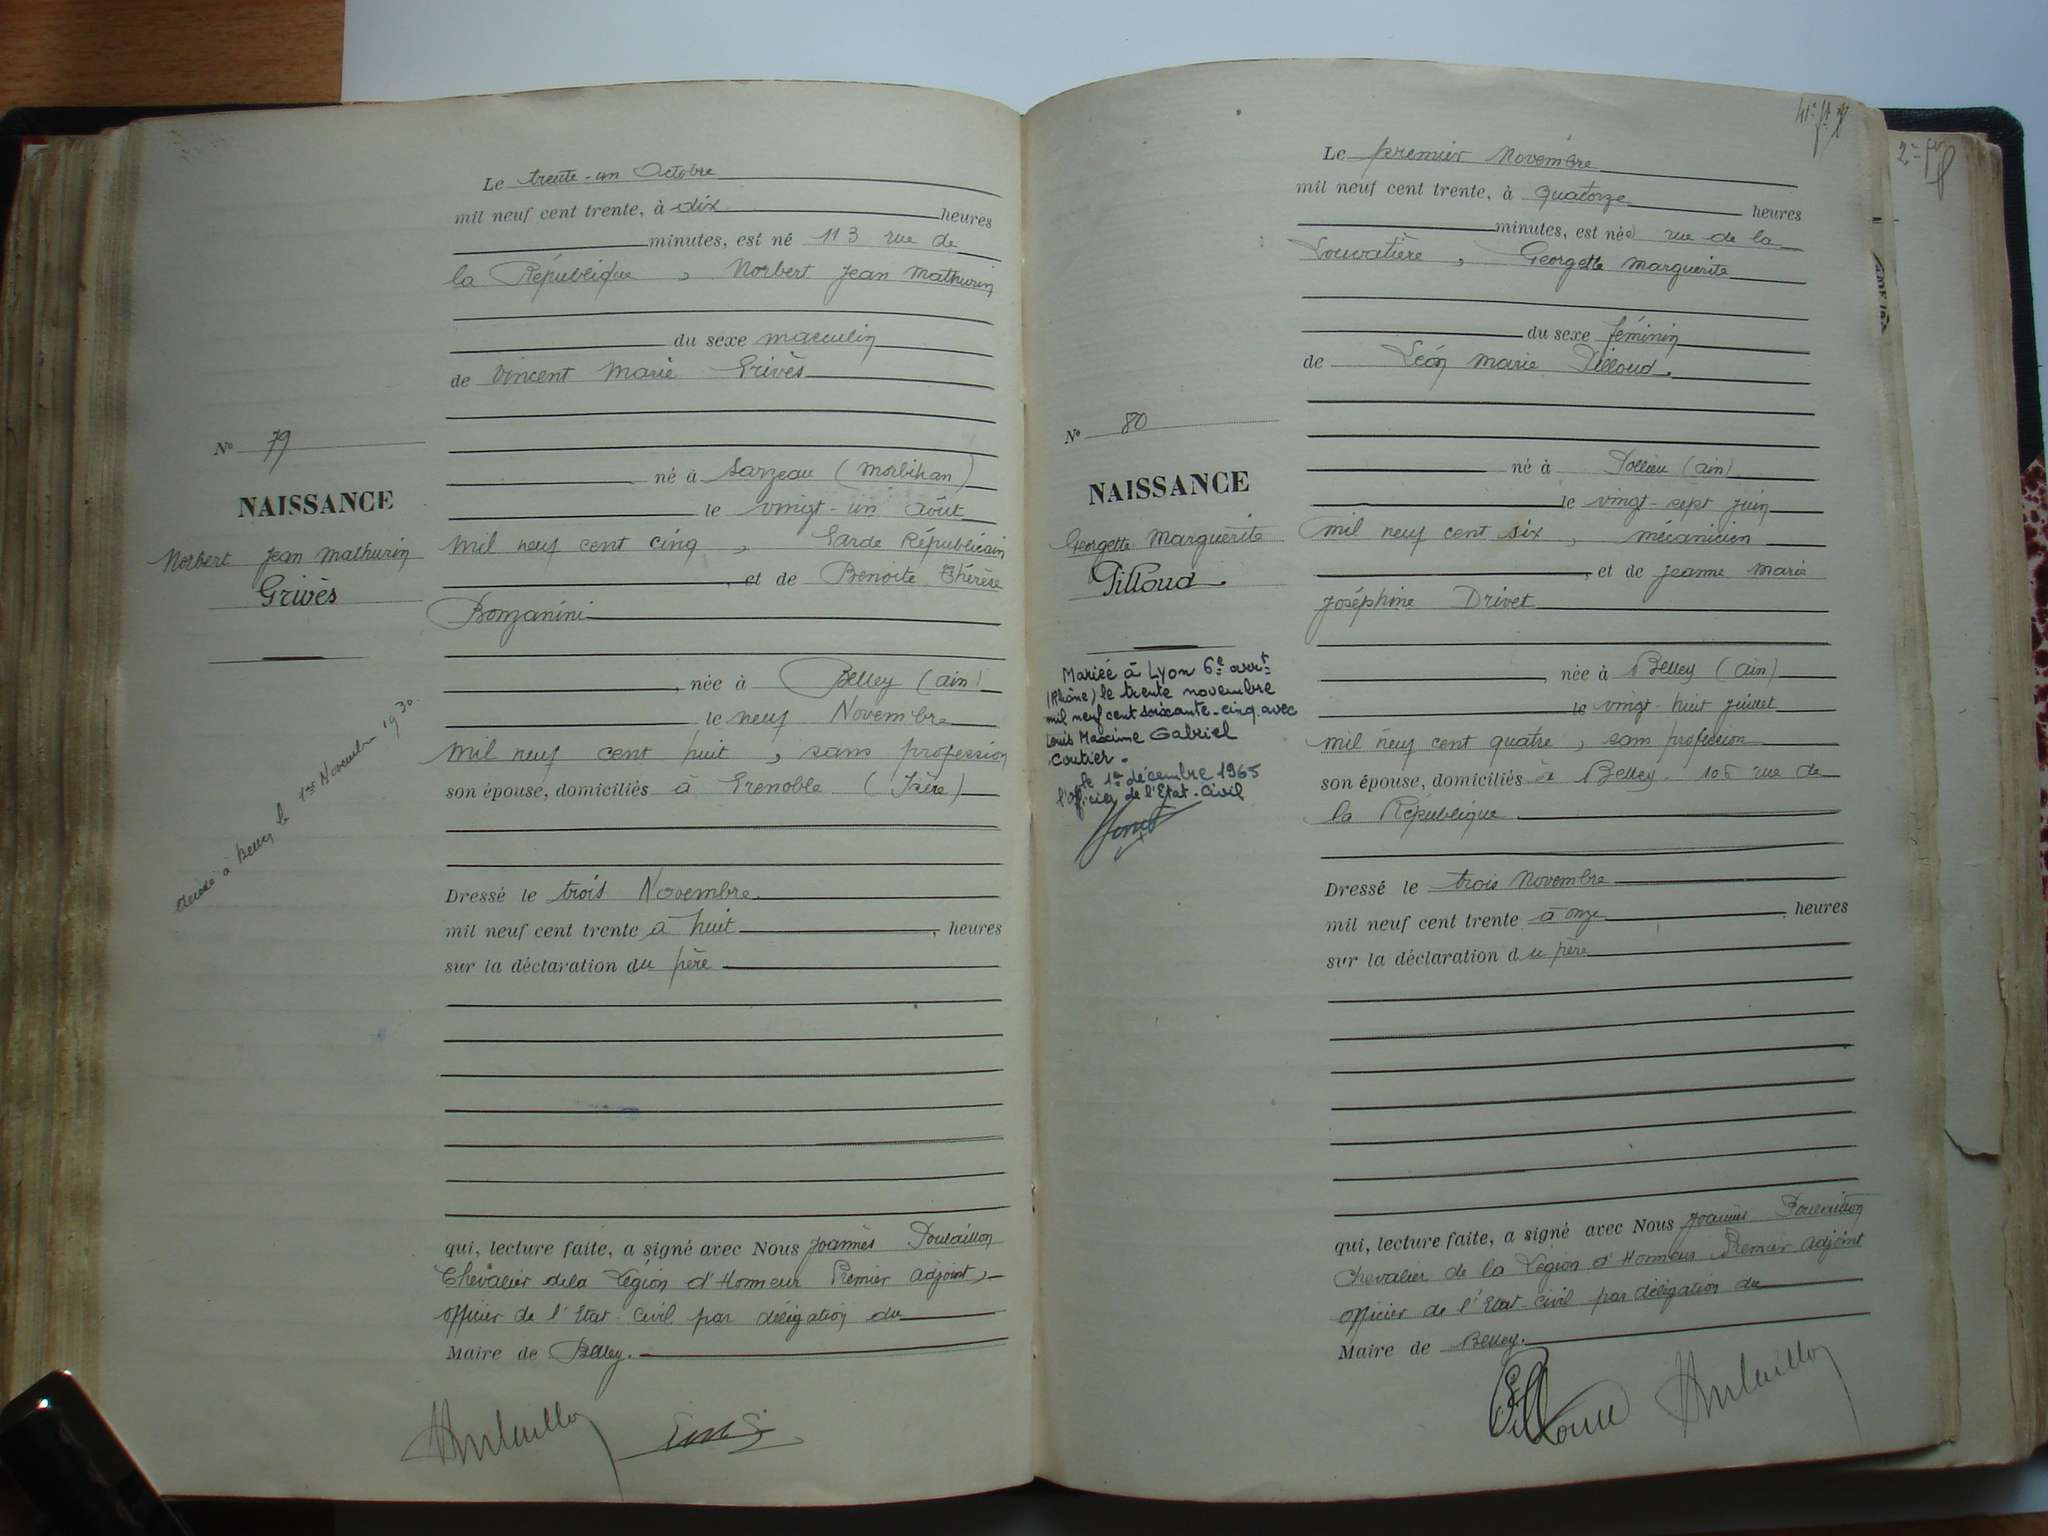 Le trente-un Octobre
mil neuf cent trente, à dix heures
minutes, est né 113 rue de
la République, Norbert Jean Mathurin
du sexe masculin
de Vincent Marie Grivès
N° 79
NAISSANCE
Norbert Jean Mathurin
Grivès
né à Sarzeau (Morbihan)
le vingt-un août
mil neuf cent cinq, Garde Républicain
, et de Benoite Thérèse
Bonzanini
, née à Belley (ain)
le neuf Novembre
mil neuf cent huit, sans profession
son épouse, domiciliés à Grenoble (Isère)
décédé à Belley le 1er Novembre 1930.
Dressé le trois Novembre
mil neuf cent trente à huit, heures
sur la déclaration du père
qui, lecture faite, a signé avec Nous Joannès Poulaillon
Chevalier de la Légion d'Honneur Premier adjoint,
officier de l'Etat-Civil par délégation du
Maire de Belley.
2e
Le premier Novembre
mil neuf cent trente, à quatorze heures
minutes, est née rue de la
Louvatière, Georgette Marguerite
du sexe féminin
de Léon Marie Pilloud.
N° 80
NAISSANCE
Georgette Marguerite
Pilloud
Mariée à Lyon 6e arrt
(Rhône) le trente novembre
mil neuf cent soixante-cinq avec
Louis Maxime Gabriel
Coutier.
le 1er décembre 1965
l'Officier de l'Etat-Civil
né à Pollieu (ain)
le vingt-sept Juin
mil neuf cent six, mécanicien
, et de Jeanne Marie
Joséphine Drivet
, née à Belley (ain)
le vingt-huit Juillet
mil neuf cent quatre, sans profession
son épouse, domiciliés à Belley 105 rue de
la République
Dressé le trois Novembre
mil neuf cent trente à onze, heures
sur la déclaration du père
qui, lecture faite, a signé avec Nous Joannès Poulaillon
Chevalier de la Légion d'Honneur Premier adjoint
officier de l'Etat-Civil par délégation du
Maire de Belley.